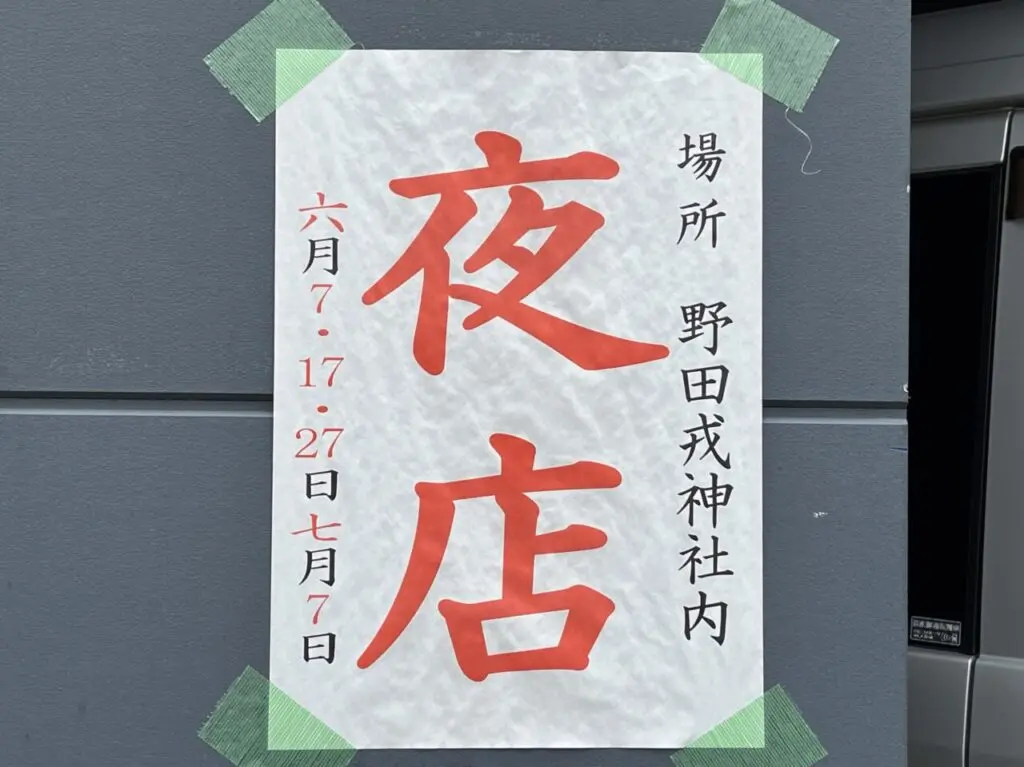 場所 野田戎神社内
夜店
六月7・17・27日七月7日